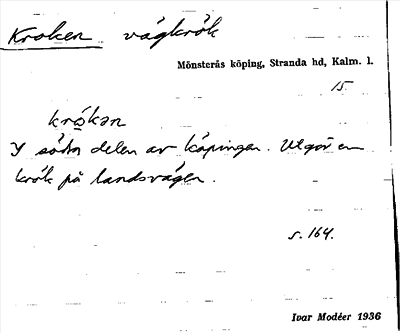 Kroken vägkrök
Mönsterås köping, Stranda hd, Kalm. l.
15
krọ̄kən
I södra delen av köpingen. Utgör en
krök på landsvägen.
s. 164.
Ivar Modéer 1936